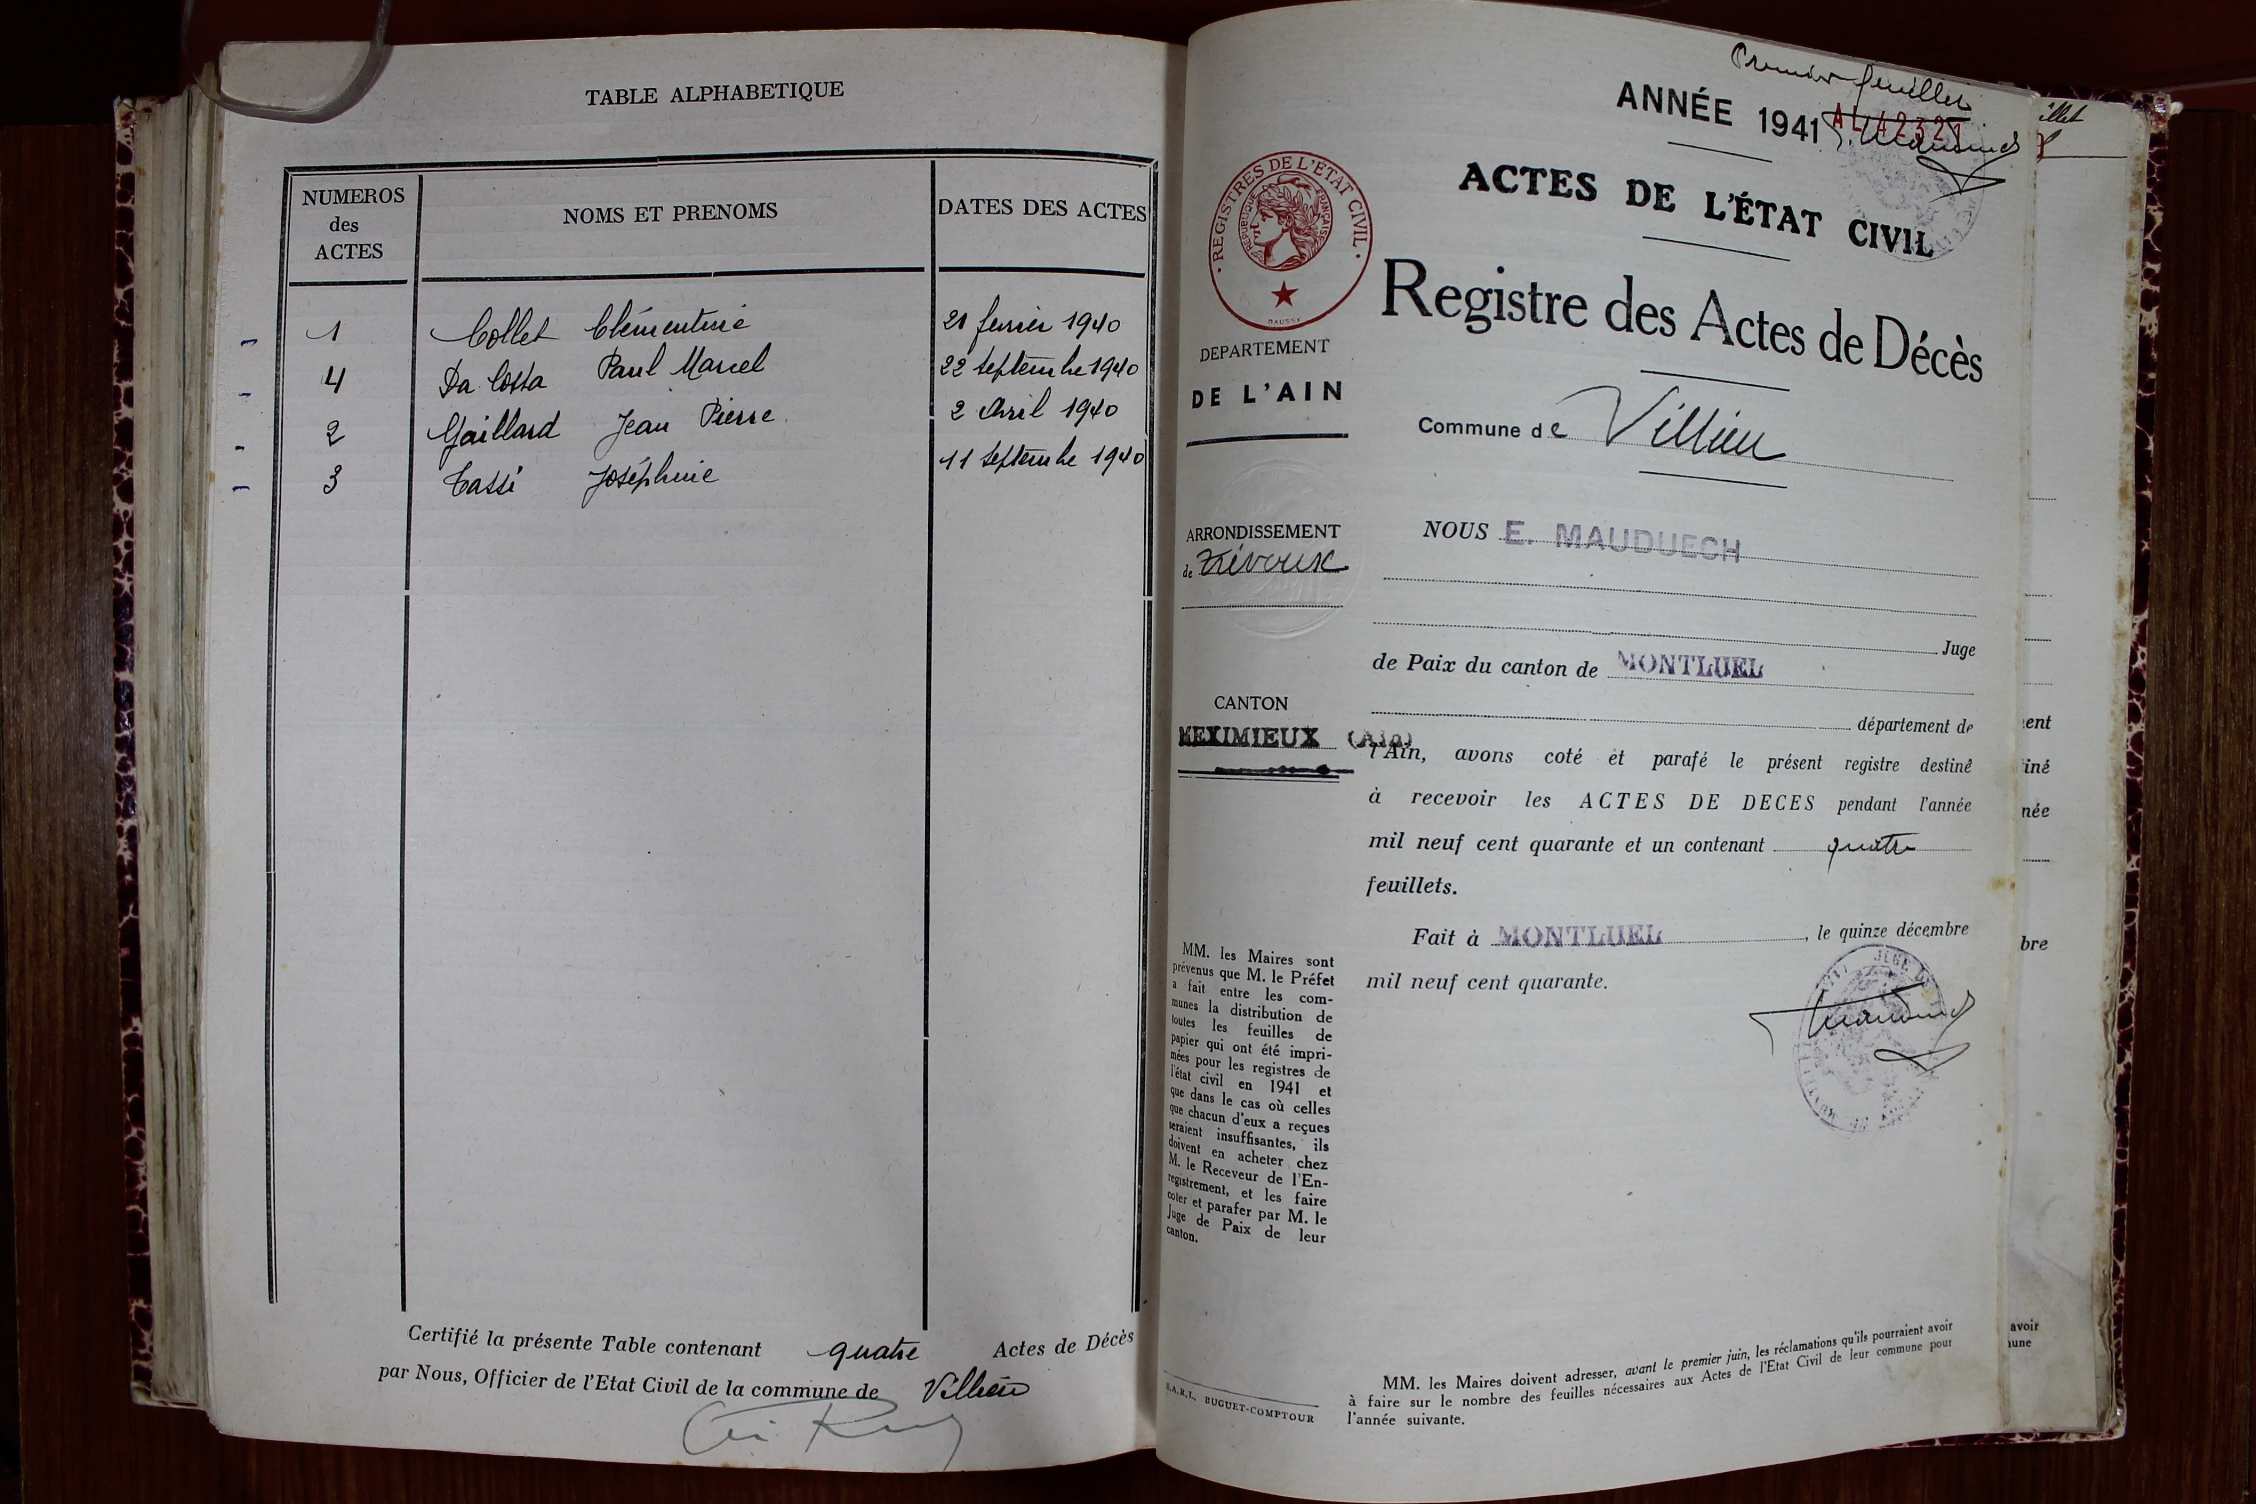 TABLE ALPHABETIQUE
NUMEROS
des
ACTES
NOMS ET PRENOMS
DATES DES ACTES
1 Collet Clémentine 21 fevrier 1940
4 Da Costa Paul Marcel 22 septembre 1940
2 Gaillard Jean Pierre 2 Avril 1940
3 Tassi Joséphine 11 septembre 1940
Certifié la présente Table contenant quatre Actes de Décès
par Nous, Officier de l'Etat Civil de la commune de Villieu
Premier feuillet
ANNÉE 1941
AL 42321
ACTES DE L'ÉTAT CIVIL
REGISTRES DE L'ÉTAT CIVIL
REPUBLIQUE FRANÇAISE
Registre des Actes de Décès
DEPARTEMENT
DE L'AIN
Commune de Villieu
ARRONDISSEMENT
de Trévoux
NOUS E. MAUDUECH
Juge
de Paix du canton de MONTLUEL
CANTON
MEXIMIEUX (Ain)
département de
l'Ain, avons coté et parafé le présent registre destiné
à recevoir les ACTES DE DECES pendant l'année
mil neuf cent quarante et un contenant quatre
feuillets.
Fait à MONTLUEL, le quinze décembre
mil neuf cent quarante.
MM. les Maires sont
prévenus que M. le Préfet
a fait entre les com-
munes la distribution de
toutes les feuilles de
papier qui ont été impri-
mées pour les registres de
l'état civil en 1941 et
que dans le cas où celles
que chacun d'eux a reçues
seraient insuffisantes, ils
doivent en acheter chez
M. le Receveur de l'En-
registrement, et les faire
coter et parafer par M. le
Juge de Paix de leur
canton.
S.A.R.L. BUGUET-COMPTOUR
MM. les Maires doivent adresser, avant le premier juin, les réclamations qu'ils pourraient avoir
à faire sur le nombre des feuilles nécessaires aux Actes de l'Etat Civil de leur commune pour
l'année suivante.
illet
ent
iné
née
bre
avoir
une